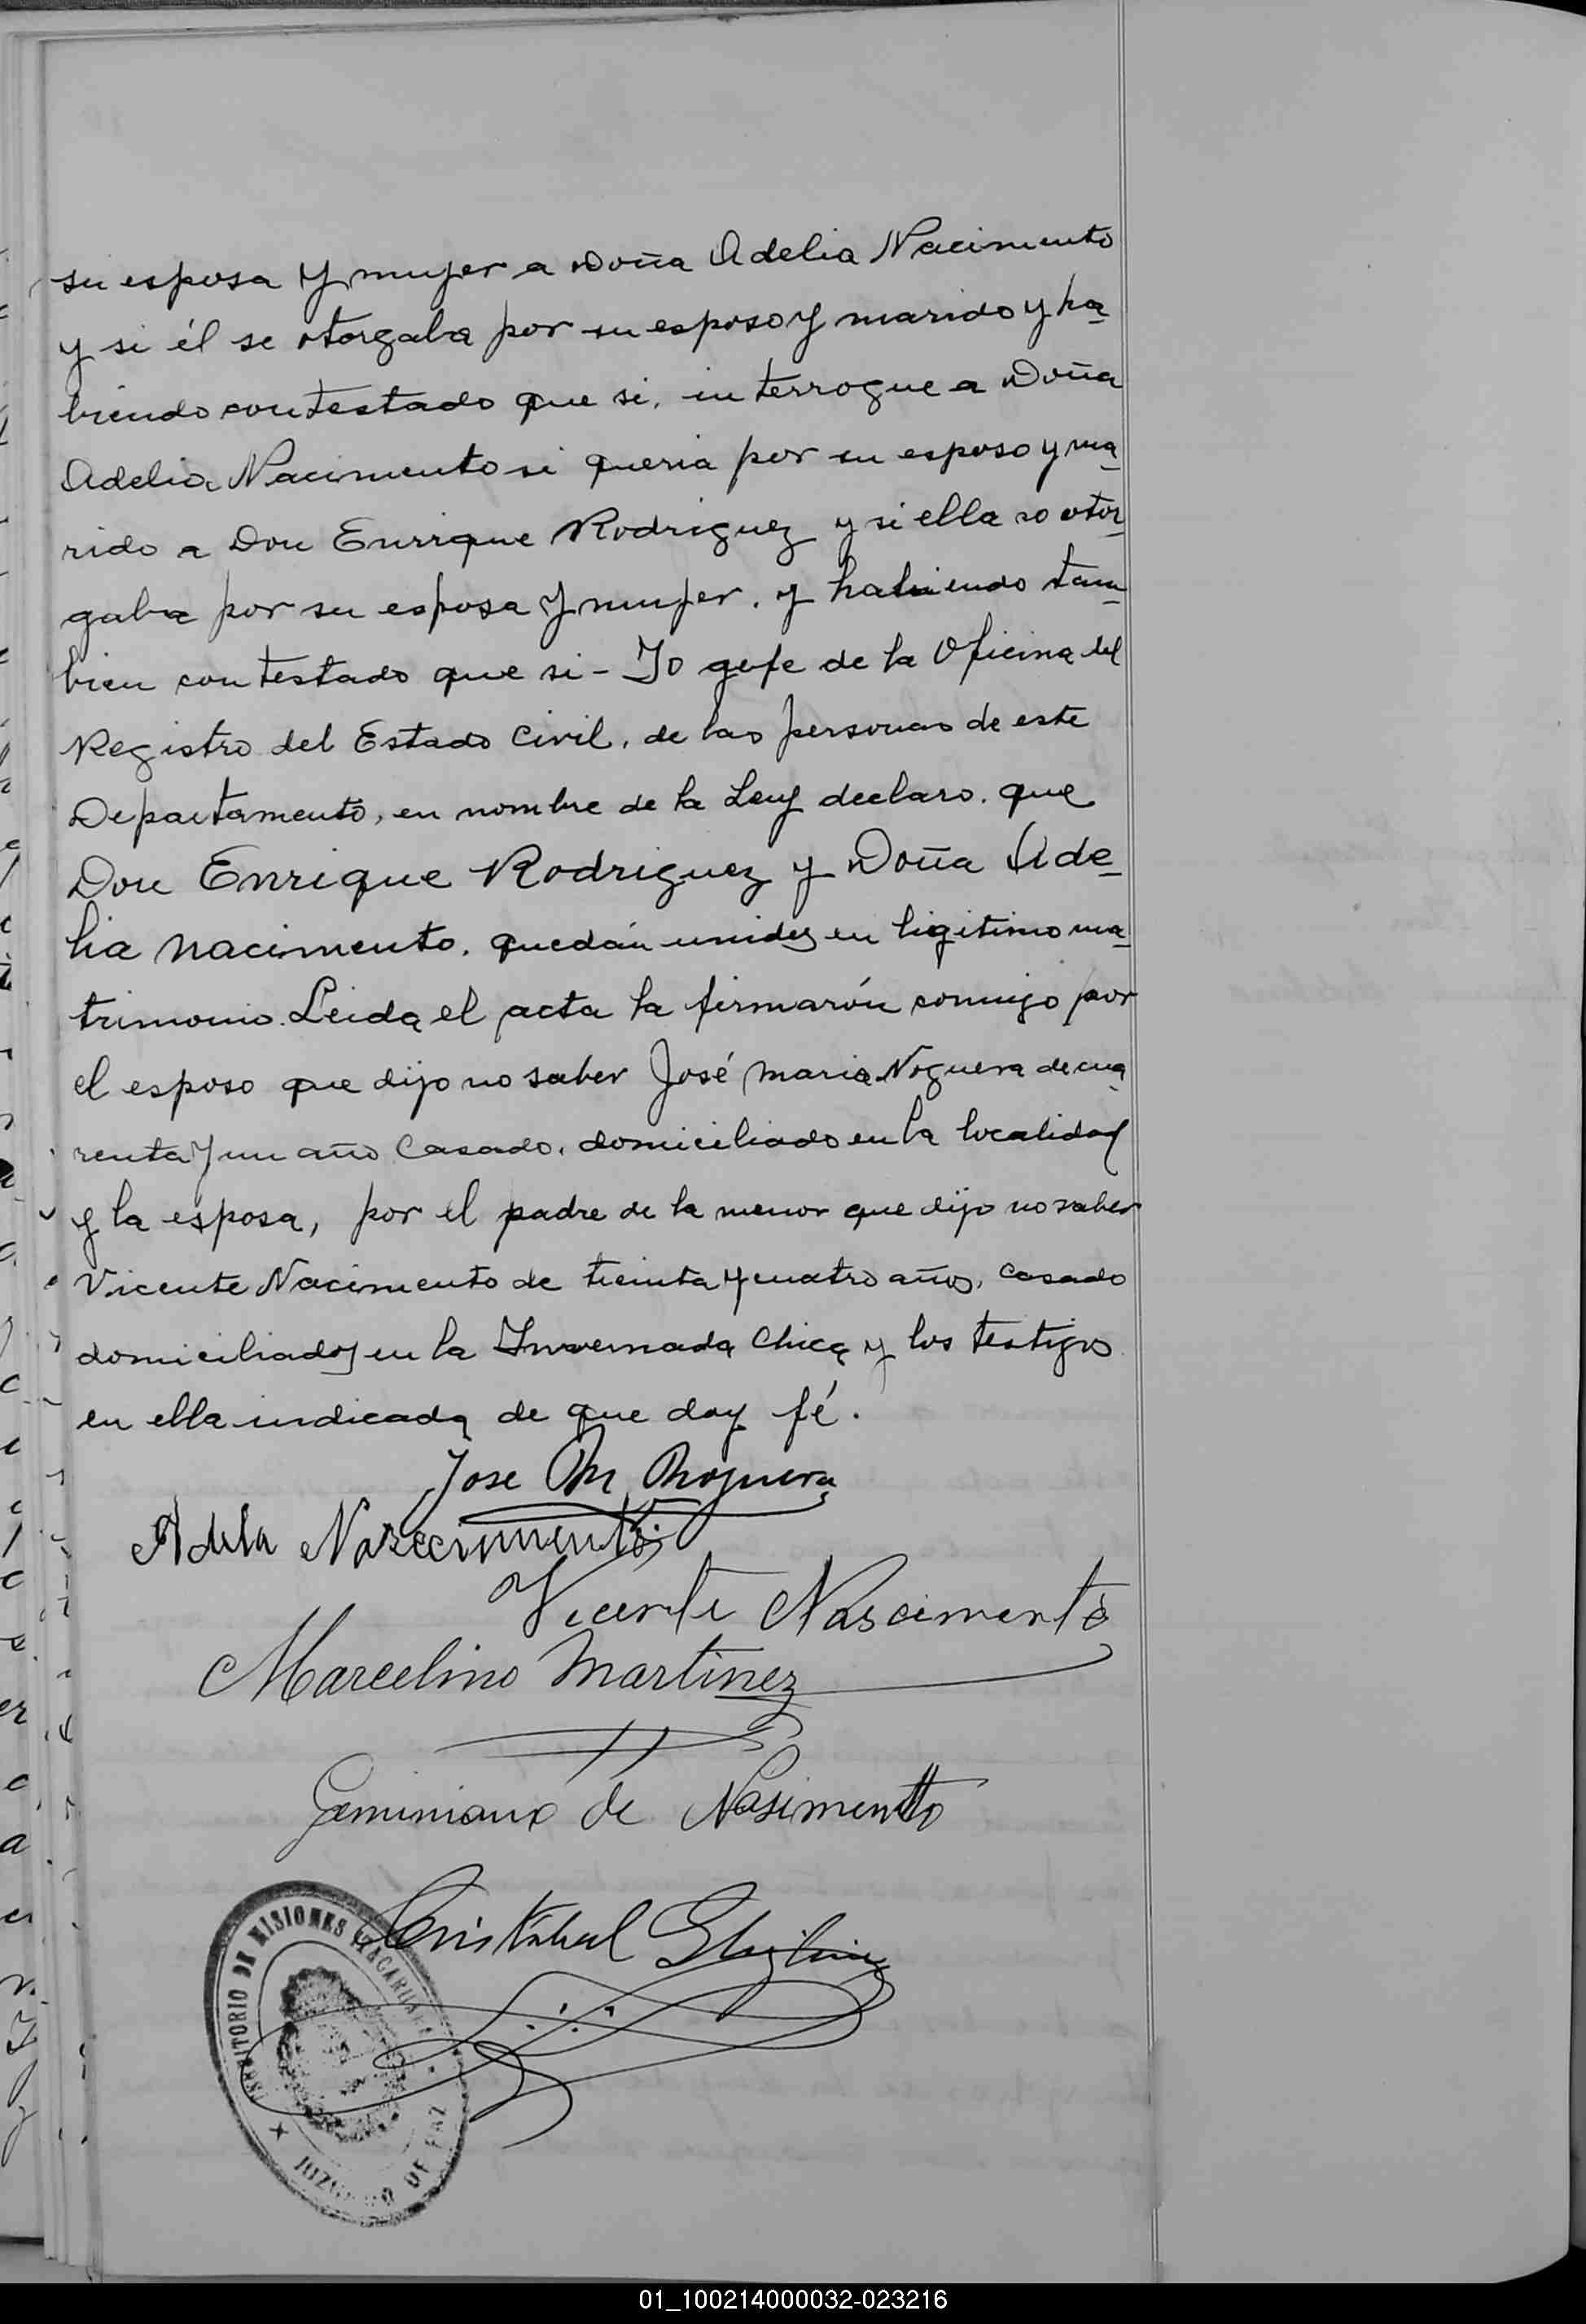 su esposa y mujer a Doña Adelia Nacimento
y si él se otorgaba por su esposo y marido y ha
biendo contestado que si, interrogue a Doña
Adelia Nacimento si queria por su esposo y ma
rido a Don Enrique Rodriguez y si ella so otor
gaba por su esposa y mujer, y habiendo tam
bien contestado que si - Yo gefe de la Oficina del
Registro del Estado Civil, de las personas de este
Departamento, en nombre de la Ley declaro, que
Don Enrique Rodriguez y Doña Ade
lia Nacimento, quedán unidos en ligitimo ma
trimonio. Leida el acta la firmarón conmigo por
el esposo que dijo no saber José Maria Noguera de cua
renta y un año Casado, domiciliado en la localidad
y la esposa, por el padre de la menor que dijo no saber
Vicente Nacimento de treinta y cuatro años, Casado
domiciliados en la Invernada Chica y los testigos
en ella indicada de que doy fé.
Jose M Noguera
Adela Nascimento
Vicente Nascimento
Marcelino Martinez
Geminiano de Nasimentto
Cristóbal
TERRITORIO DE MISIONES
JUZGADO DE PAZ
01_100214000032-023216